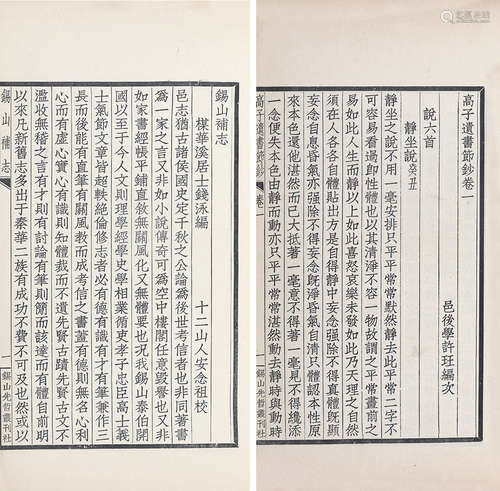 高子遺書節鈔卷一
邑後學許珏編次
說六首
靜坐說癸丑
靜坐之說不用一毫安排只平平常常默然靜去此平常二字不
可容易看過即性體也以其清淨不容一物故謂之平常畫前之
易如此人生而靜以上如此喜怒哀樂未發如此乃天理之自然
須在人各各自體貼出方是自得靜中妄念強除不得真體既顯
妄念自息昏氣亦強除不得妄念既淨昏氣自清只體認本性原
來本色還他湛然而已大抵著一毫意不得著一毫見不得纔添
一念便失本色由靜而動亦只平平常常湛然動去靜時與動時
高子遺書節鈔 卷一
一 錫山先哲叢刊社
錫山補志
楳華溪居士錢泳編 十二山人安念祖校
邑志猶古諸侯國史定千秋之公論為後世考信者也非同著書
為一家之言又非如小說傳奇可為空中樓閣任意毀譽也又非
如家書經帳平鋪直敘無關風化又無體要也況我錫山泰伯開
國以至于今人文則理學經學史學相業循吏孝子忠臣高士義
士氣節文章皆超軼絕倫修志者必有德有識有才有筆兼作三
長而後能有直筆有關風教而成考信之書蓋有德則無名心利
心而有虛心實心有識則知體裁而不遺先賢古蹟先賢古文不
濫收無稽之言有才則有討論有筆則簡而該達而有體自前明
以來凡新舊志多出于秦華二族有成功不費不可及也然或以
錫山補志
一 錫山先哲叢刊社